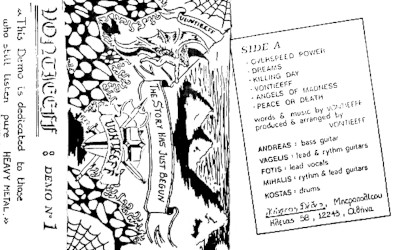 VONTIEEFF
DEMO Nº 1
«This Demo is dedicated to those
who still listen pure HEAVY METAL.»
VONTIEEFF
THE STORY HAS JUST BEGUN
VONTIEEFF
SIDE A
- OVERSPEED POWER
- DREAMS
- KILLING DAY
- VONTIEEFF
- ANGELS OF MADNESS
- PEACE OR DEATH
words & music by VONTIEEFF
produced & arranged by
VONTIEEFF
ANDREAS : bass guitar
VAGELIS : lead & rythm guitars
FOTIS : lead vocals
MIHALIS : rythm & lead guitars
KOSTAS : drums
58, 12243, Αθήνα